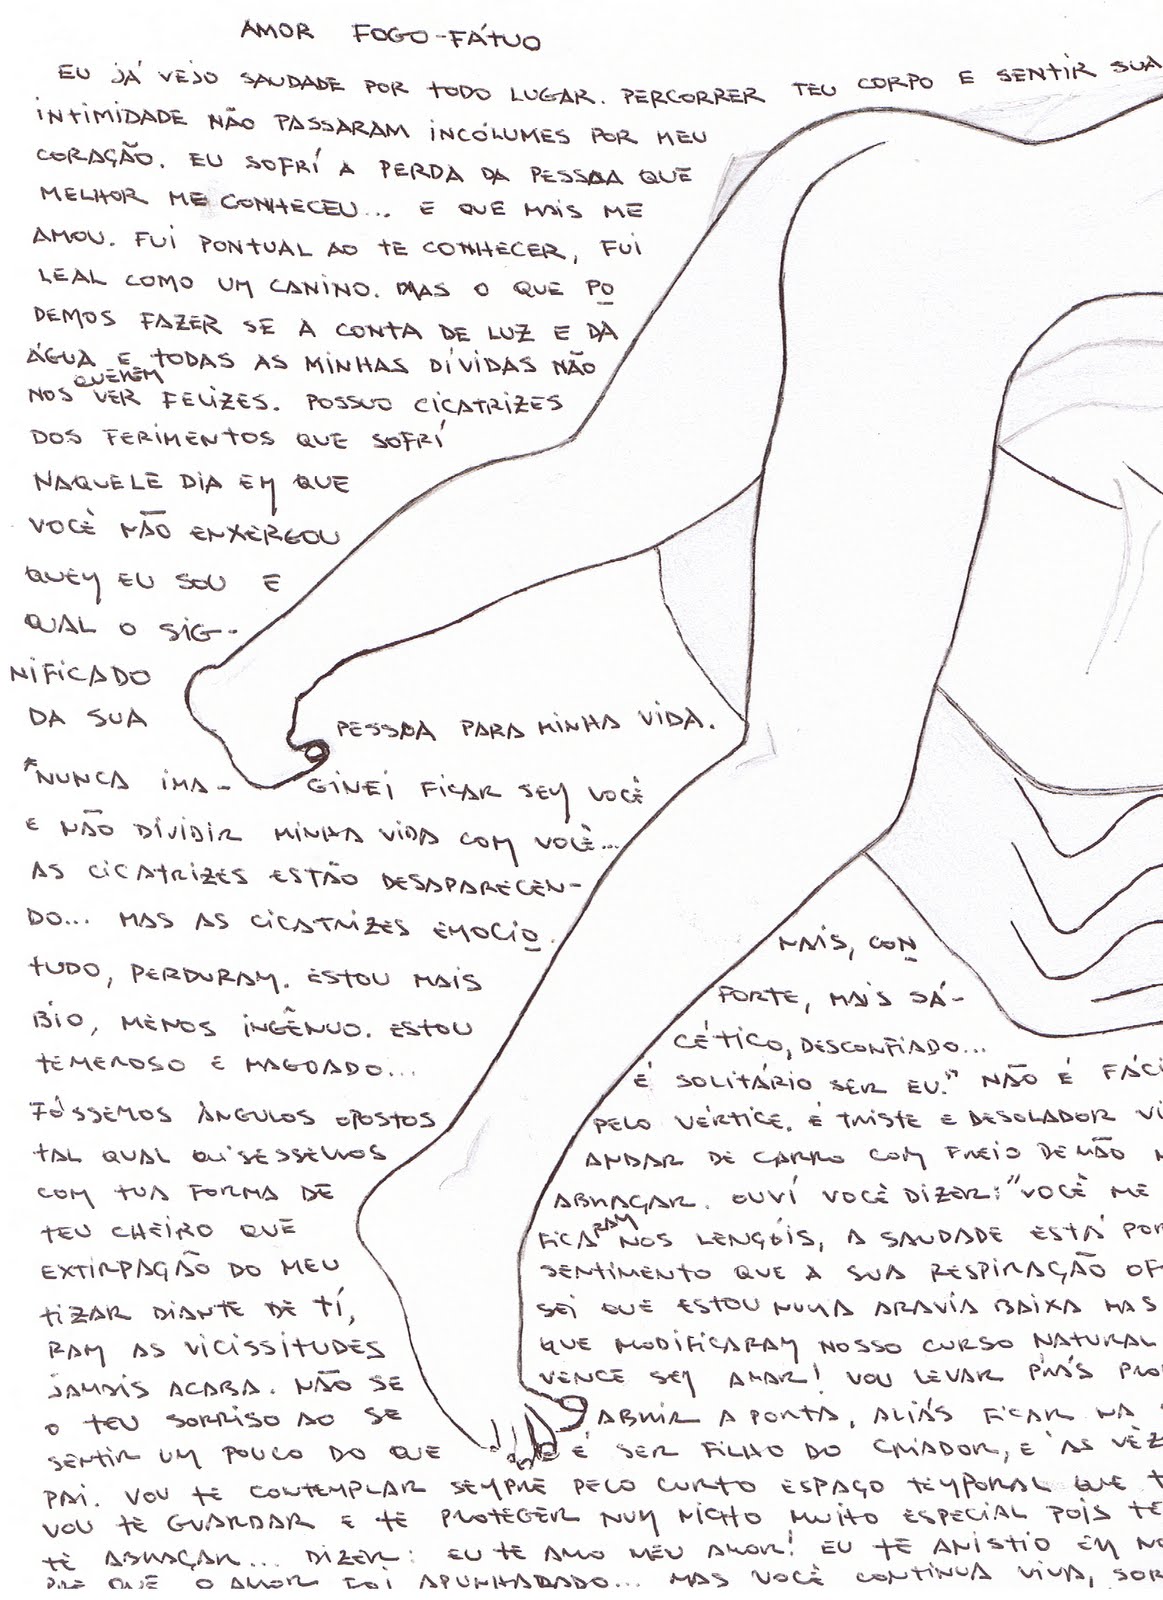 AMOR FOGO-FÁTUO
EU JÁ VEJO SAUDADE POR TODO LUGAR. PERCORRER TEU CORPO E SENTIR SUA
INTIMIDADE NÃO PASSARAM INCÓLUMES POR MEU
CORAÇÃO. EU SOFRÍ A PERDA DA PESSOA QUE
MELHOR ME CONHECEU... E QUE MAIS ME
AMOU. FUI PONTUAL AO TE CONHECER, FUI
LEAL COMO UM CANINO. MAS O QUE PO
DEMOS FAZER SE A CONTA DE LUZ E DA
ÁGUA E TODAS AS MINHAS DÍVIDAS NÃO
NOS QUEREM VER FELIZES. POSSUO CICATRIZES
DOS FERIMENTOS QUE SOFRÍ
NAQUELE DIA EM QUE
VOCÊ NÃO ENXERGOU
QUEM EU SOU E
QUAL O SIG-
NIFICADO
DA SUA PESSOA PARA MINHA VIDA.
"NUNCA IMA- GINEI FICAR SEM VOCÊ
E NÃO DIVIDIR MINHA VIDA COM VOCÊ...
AS CICATRIZES ESTÃO DESAPARECEN-
DO... MAS AS CICATRIZES EMOCIO
MAIS, CON
TUDO, PERDURAM. ESTOU MAIS FORTE, MAIS SÁ-
BIO, MENOS INGÊNUO. ESTOU CÉTICO, DESCONFIADO...
TEMEROSO E MAGOADO... É SOLITÁRIO SER EU." NÃO É FÁCI
FÔSSEMOS ÂNGULOS OPOSTOS PELO VÉRTICE. É TRISTE E DESOLADOR VI
TAL QUAL QUISESSEMOS ANDAR DE CARRO COM FREIO DE MÃO
COM TUA FORMA DE ABRAÇAR. OUVÍ VOCÊ DIZER: "VOCÊ ME
TEU CHEIRO QUE FICARAM NOS LENÇÓIS, A SAUDADE ESTÁ POR
EXTIRPAÇÃO DO MEU SENTIMENTO QUE A SUA RESPIRAÇÃO OF
TIZAR DIANTE DE TÍ, SEI QUE ESTOU NUMA ARAVIA BAIXA MAS
RAM AS VICISSITUDES QUE MODIFICARAM NOSSO CURSO NATURAL
JAMAIS ACABA. NÃO SE VENCE SEM AMAR! VOU LEVAR PRÁS PRO
O TEU SORRISO AO SE ABRIR A PORTA, ALIÁS FICAR NA
SENTIR UM POUCO DO QUE É SER FILHO DO CRIADOR, E ÀS VÊZ
PAI. VOU TE CONTEMPLAR SEMPRE PELO CURTO ESPAÇO TEMPORAL QUE T
VOU TE GUARDAR E TE PROTEGER NUM NICHO MUITO ESPECIAL POIS TE
TE ABRAÇAR... DIZER: EU TE AMO MEU AMOR! EU TE ANISTIO EM NO
PRE QUE O AMOR FOI APUNHADADO... MAS VOCÊ CONTINUA VIVA, SOR